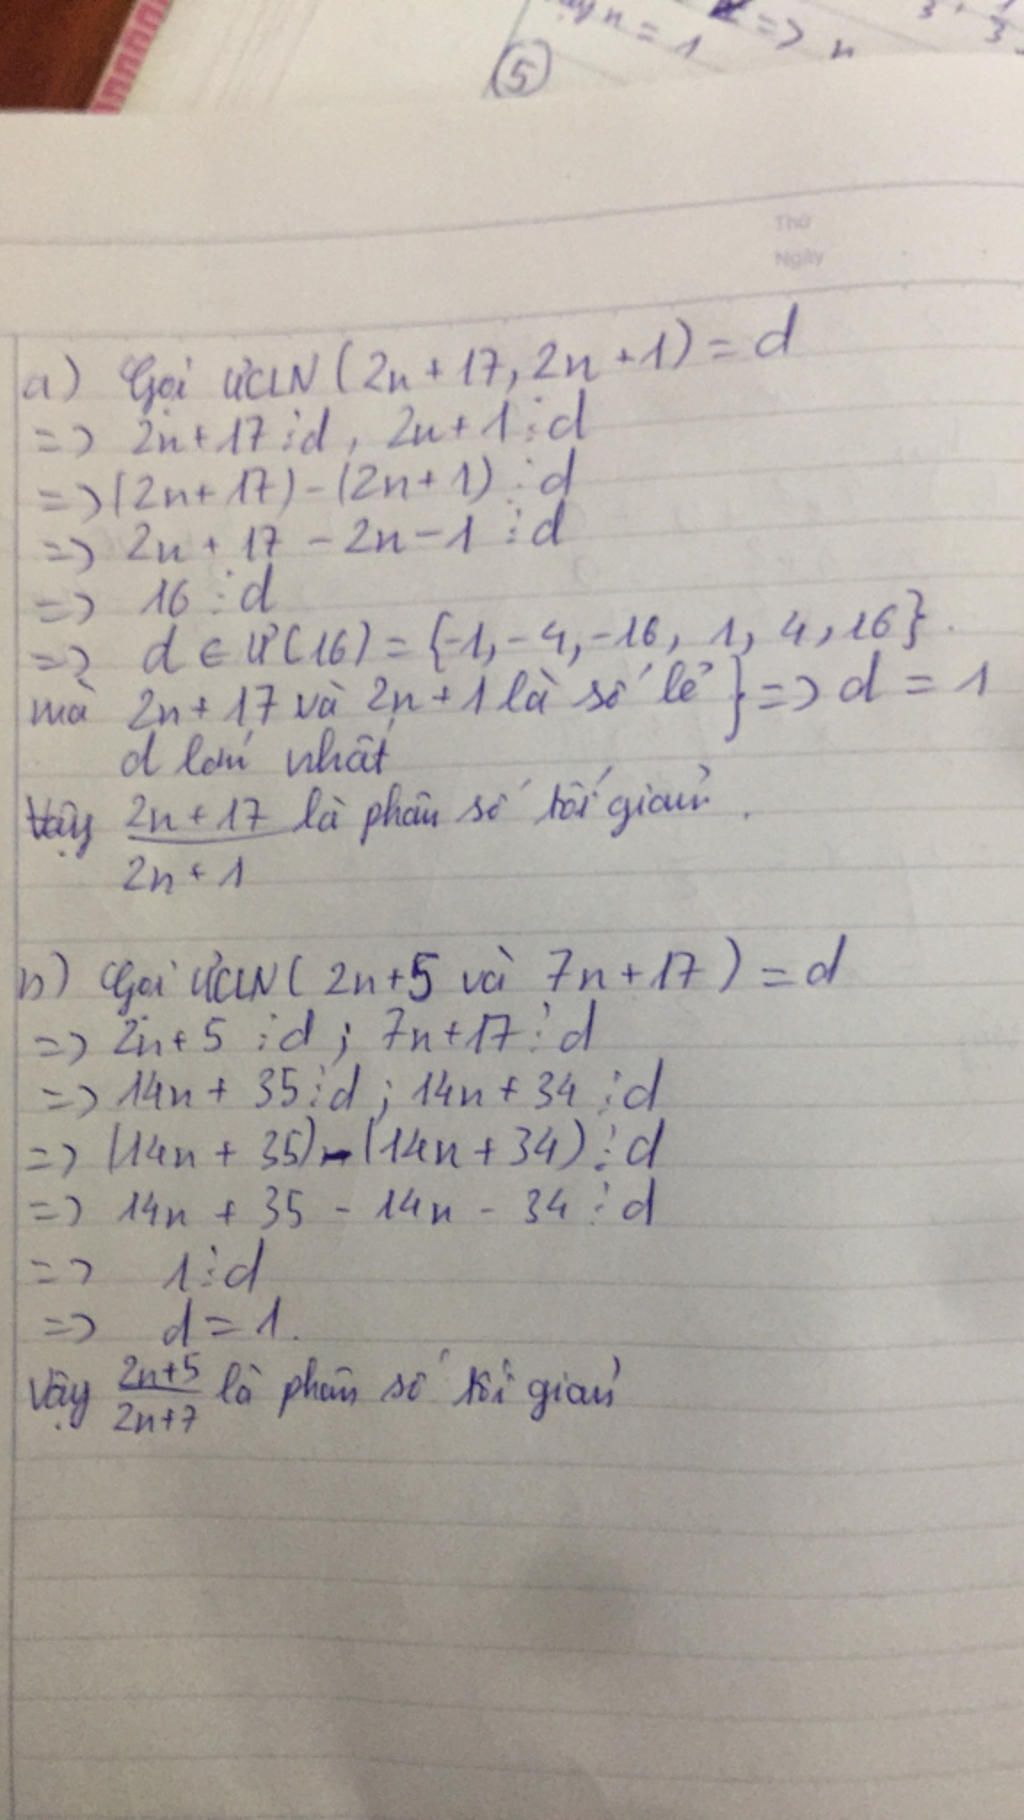 n = 1 => n
⑤
Thứ
Ngày
a) Gọi ƯCLN (2n + 17, 2n + 1) = d
=> 2n + 17 ⋮ d, 2n + 1 ⋮ d
=> (2n + 17) - (2n + 1) ⋮ d
=> 2n + 17 - 2n - 1 ⋮ d
=> 16 ⋮ d
=> d ∈ Ư(16) = {-1, -4, -16, 1, 4, 16}.
mà 2n + 17 và 2n + 1 là số lẻ } => d = 1
d lớn nhất
Vậy 2n + 17 / 2n + 1 là phân số tối giản.
b) Gọi ƯCLN ( 2n+5 và 7n + 17 ) = d
=> 2n + 5 ⋮ d ; 7n + 17 ⋮ d
=> 14n + 35 ⋮ d ; 14n + 34 ⋮ d
=> (14n + 35) - (14n + 34) ⋮ d
=> 14n + 35 - 14n - 34 ⋮ d
=> 1 ⋮ d
=> d = 1.
Vậy 2n+5 / 2n+7 là phân số tối giản